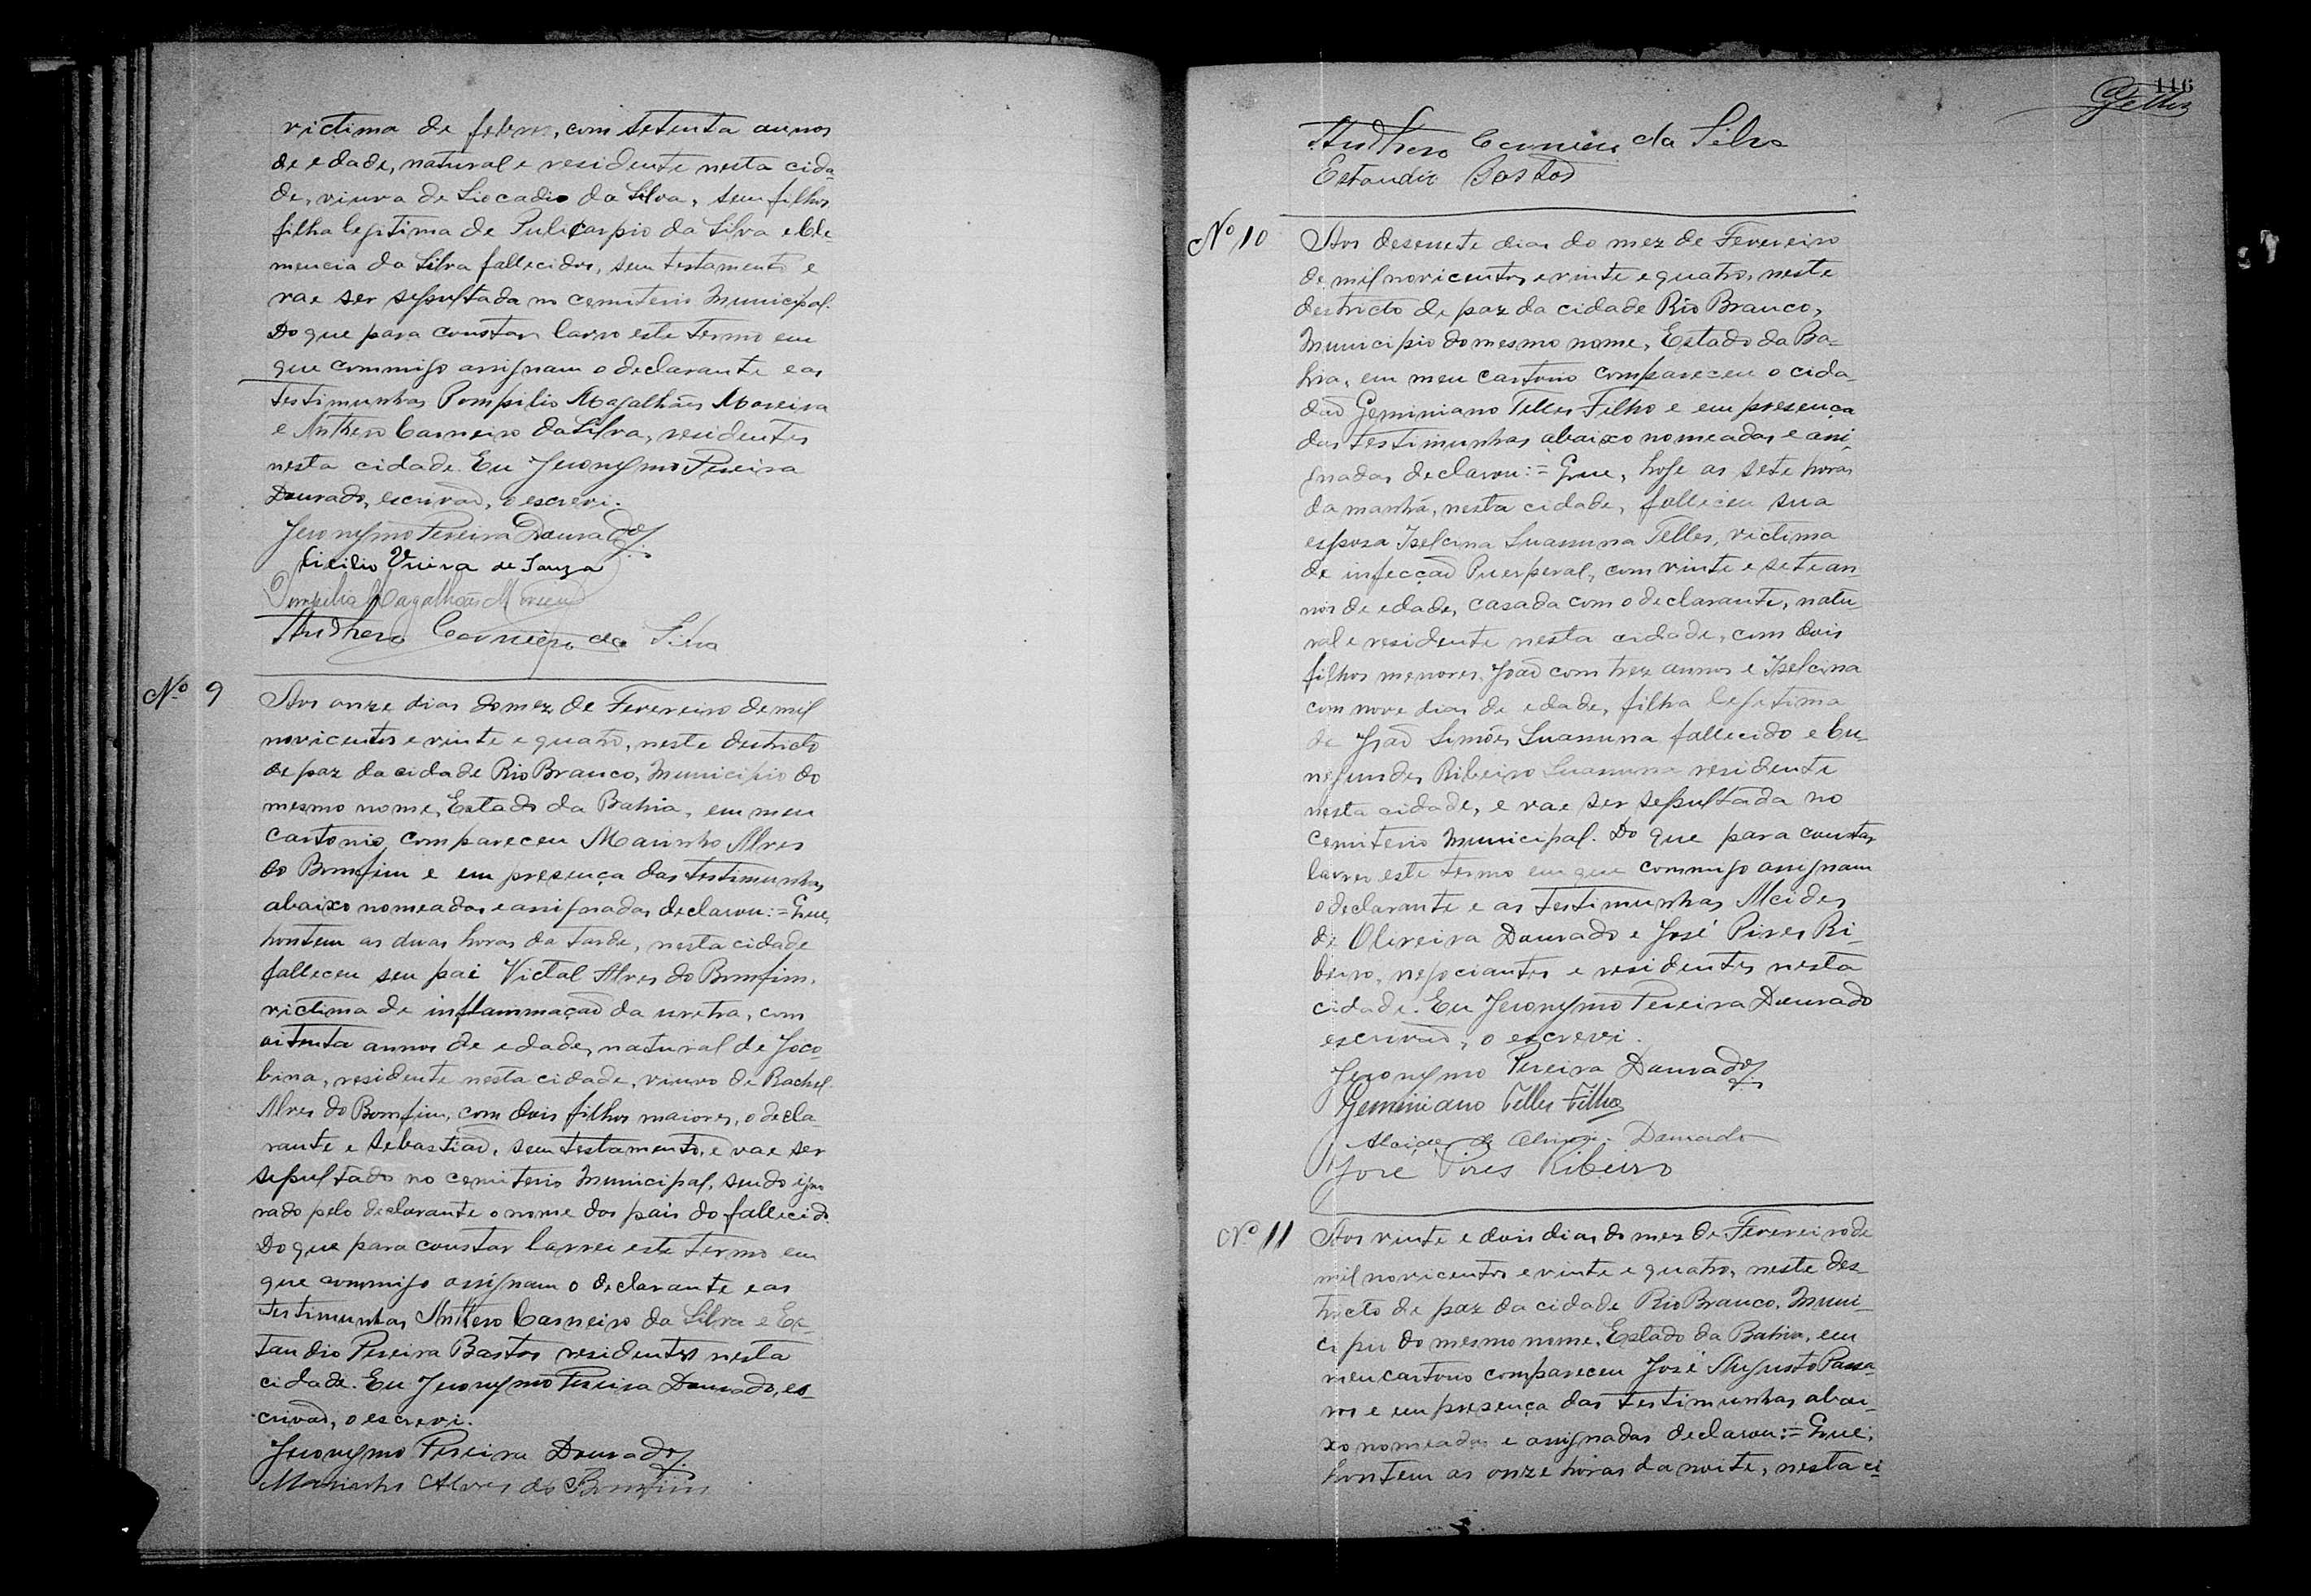 victima de febre, com setenta annos
de edade, natural e residente nesta cida-
de, viuva de Liocadio da Silva, sem filhos
filha legitima de Pulicarpio da Silva e Cle-
mencia da Silva fallecidos, sem testamento e
vae ser sepultada no cemiterio Municipal.
Do que para constar lavro este termo em
que commigo assignam o declarante e as
testimunhas Pompilio Magalhães Moreira
e Anthero Carneiro da Silva, residentes
nesta cidade. Eu Jeronymo Pereira
Dourado, escrivaõ, o escrevi.
Jeronymo Pereira Dourado
Cicilio Vieira de Souza
Pompilio Magalhães Moreira
Anthero Carneiro da Silva
Nº 9
Aos onze dias do mez de Fevereiro de mil
novicentos e vinte e quatro, neste destricto
de paz da cidade Rio Branco, Municipio do
mesmo nome, Estado da Bahia, em meu
cartorio, compareceu Marinho Alves
do Bomfim e em presença das testimunhas
abaixo nomeadas e assignadas declarou:= Que,
hontem as duas horas da tarde, nesta cidade
falleceu seu pai Victal Alves do Bomfim,
victima de inflammaçaõ da uretra, com
oitenta annos de edade, natural de Jaco-
bina, residente nesta cidade, viuvo de Rachel
Alves do Bomfim, com dois filhos maiores, o decla-
rante e Sebastiaõ, sem testamento, e vae ser
sepultado no cemiterio Municipal, sendo igno
rado pelo declarante o nome dos pais do fallecido.
Do que para constar lavrei este termo em
que commigo assignam o declarante e as
testimunhas Anthero Carneiro da Silva e Es-
tandio Pereira Bastos residentes nesta
cidade. Eu Jeronymo Pereira Dourado, es-
crivaõ, o escrevi.
Jeronymo Pereira Dourado
Marinho Alves do Bomfim
116
Telles
Anthero Carneiro da Silva
Estandio Bastos
Nº 10
Aos desesete dias do mez de Fevereiro
de mil novicentos e vinte e quatro, neste
destricto de paz da cidade Rio Branco,
Municipio do mesmo nome, Estado da Ba-
hia, em meu cartorio compareceu o cida-
daõ Geminiano Telles Filho e em presença
das testimunhas abaixo nomeadas e assi-
gnadas declarou:= Que, hoje as sete horas
da manhã, nesta cidade, falleceu sua
esposa Iselcina Suassuna Telles, victima
de infecçaõ Puerperal, com vinte e sete an-
nos de edade, casada com o declarante, natu-
ral e residente nesta cidade, com dois
filhos menores, Joaõ com trez annos e Iselcina
com nove dias de edade, filha legitima
de Joaõ Simões Suassuna fallecido e Cu-
negundes Ribeiro Suassuna residente
nesta cidade, e vae ser sepultada no
cemiterio Municipal. Do que para constar
lavrei este termo em que commigo assignam
o declarante e as testimunhas Alcides
de Oliveira Dourado e José Pires Ri-
beiro, negociantes e residentes nesta
cidade. Eu Jeronymo Pereira Dourado
escrivaõ, o escrevi.
Jeronymo Pereira Dourado
Geminiano Telles Filho
Alcides de Oliveira Dourado
José Pires Ribeiro
Nº 11
Aos vinte e dois dias do mez de Fevereiro de
mil novicentos e vinte e quatro, neste des-
tricto de paz da cidade Rio Branco, Muni-
cipio do mesmo nome, Estado da Bahia, em
meu cartorio compareceu José Augusto Passa-
ros e em presença das testimunhas abai-
xo nomeadas e assignadas declarou:= Que,
hontem as onze horas da noite, nesta ci-